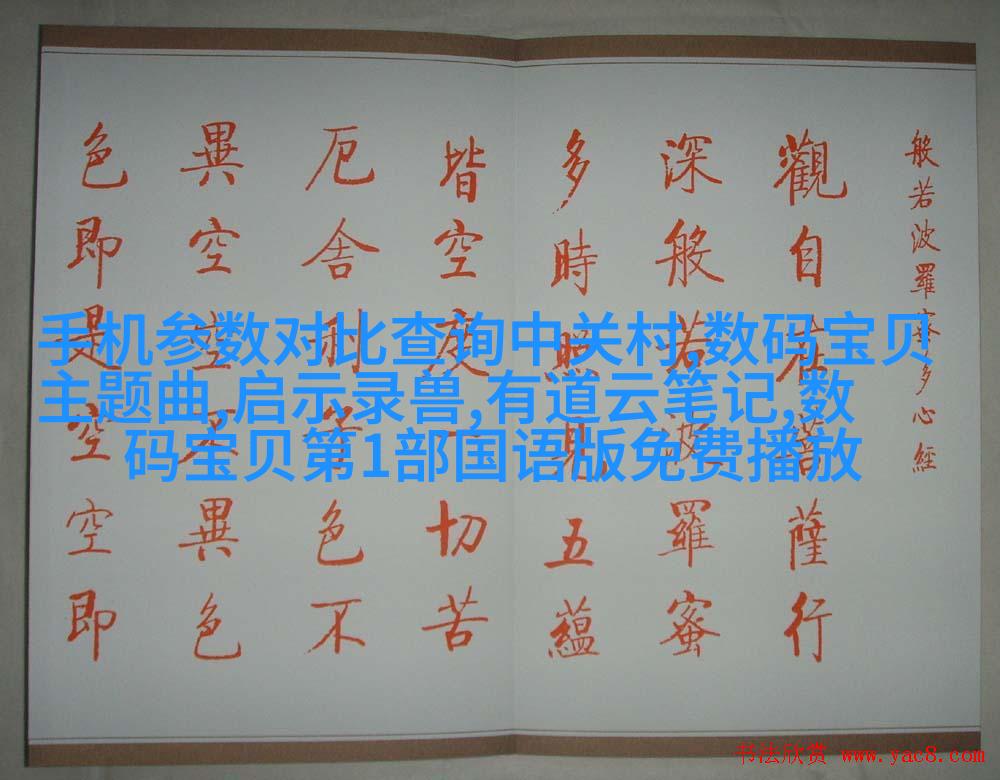 般若波羅蜜多心經
觀自在菩薩行
深般若波羅蜜
多時照見五蘊
皆空度一切苦
厄舍利色不
異空空不異色
色即是空空即
手机参数对比查询中关村,数码宝贝
主题曲,启示录兽,有道云笔记,数
码宝贝第1部国语版免费播放
书法欣赏 www.yac8.com